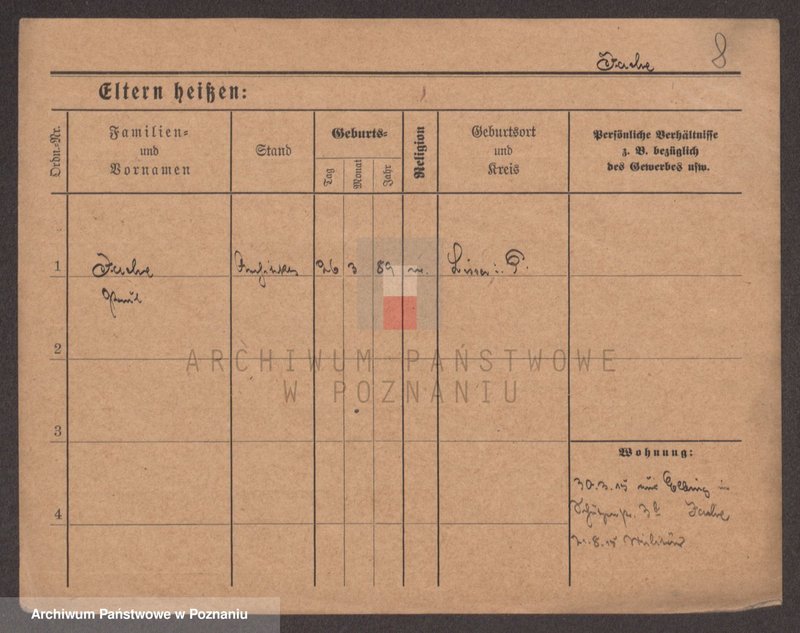 Jache 8
Eltern heißen:
Ordn.-Nr.
Familien-
und
Vornamen
Stand
Geburts-
Tag
Monat
Jahr
Religion
Geburtsort
und
Kreis
Persönliche Verhältnisse
z. B. bezüglich
des Gewerbes usw.
1 Jache 26 3 89 Lissa i. P.
Paul
2
ARCHIWUM PAŃSTWOWE
W POZNANIU
3
Wohnung:
30.3.15 aus Elbing in
Schützenstr. 3 Jache
4
21.8.15 Militär
Archiwum Państwowe w Poznaniu